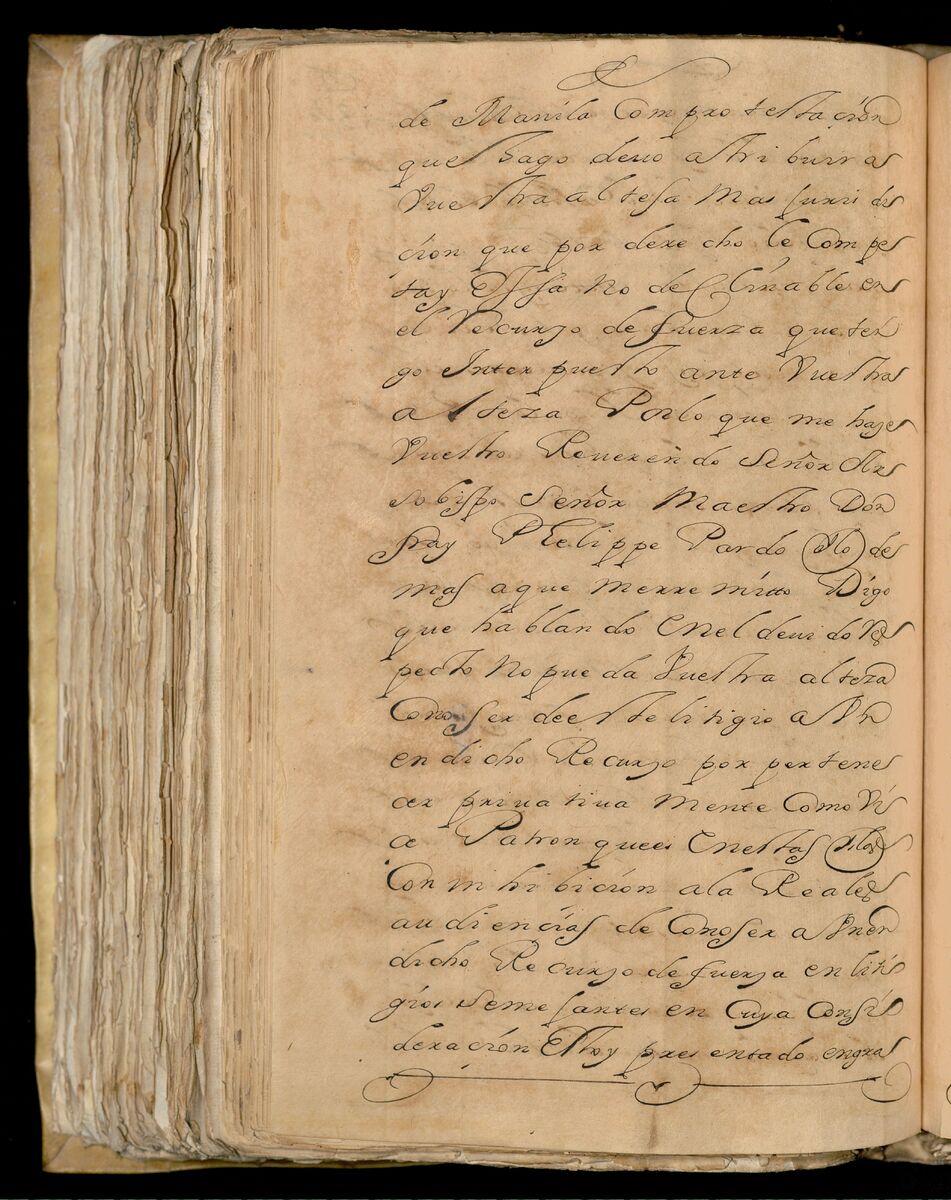 de Manila Com pro testa ción
que hago deuo atri buir a
Vuestra al tesa mas Juris di
cion que por dere cho le Com pe
ta y Essa no de Clinable en
el Recurso de fuerza que ten
go Inter puesto ante Vuestra
al teza Porlo que me haze
Vuestro Reueren do Señor Ar
sobispo Señor Maestro Don
fray Phelippe Pardo Ylo de
mas aque merre mitto Digo
que hablan do Enel deui do res
pecto no pue da Vuestra al teza
Cono ser de este li tigio a Vn
en di cho Re curso por per tene
cer priua tiua mente Como Vi
ce Patron quees Enestas Yslas
Con in hi bición ala Reales
au di encias de Cono ser a Vnen
dicho Re curso de fuersa en liti
gios Seme Jantes en Cuya Consi
deración Estoy pres entado engra